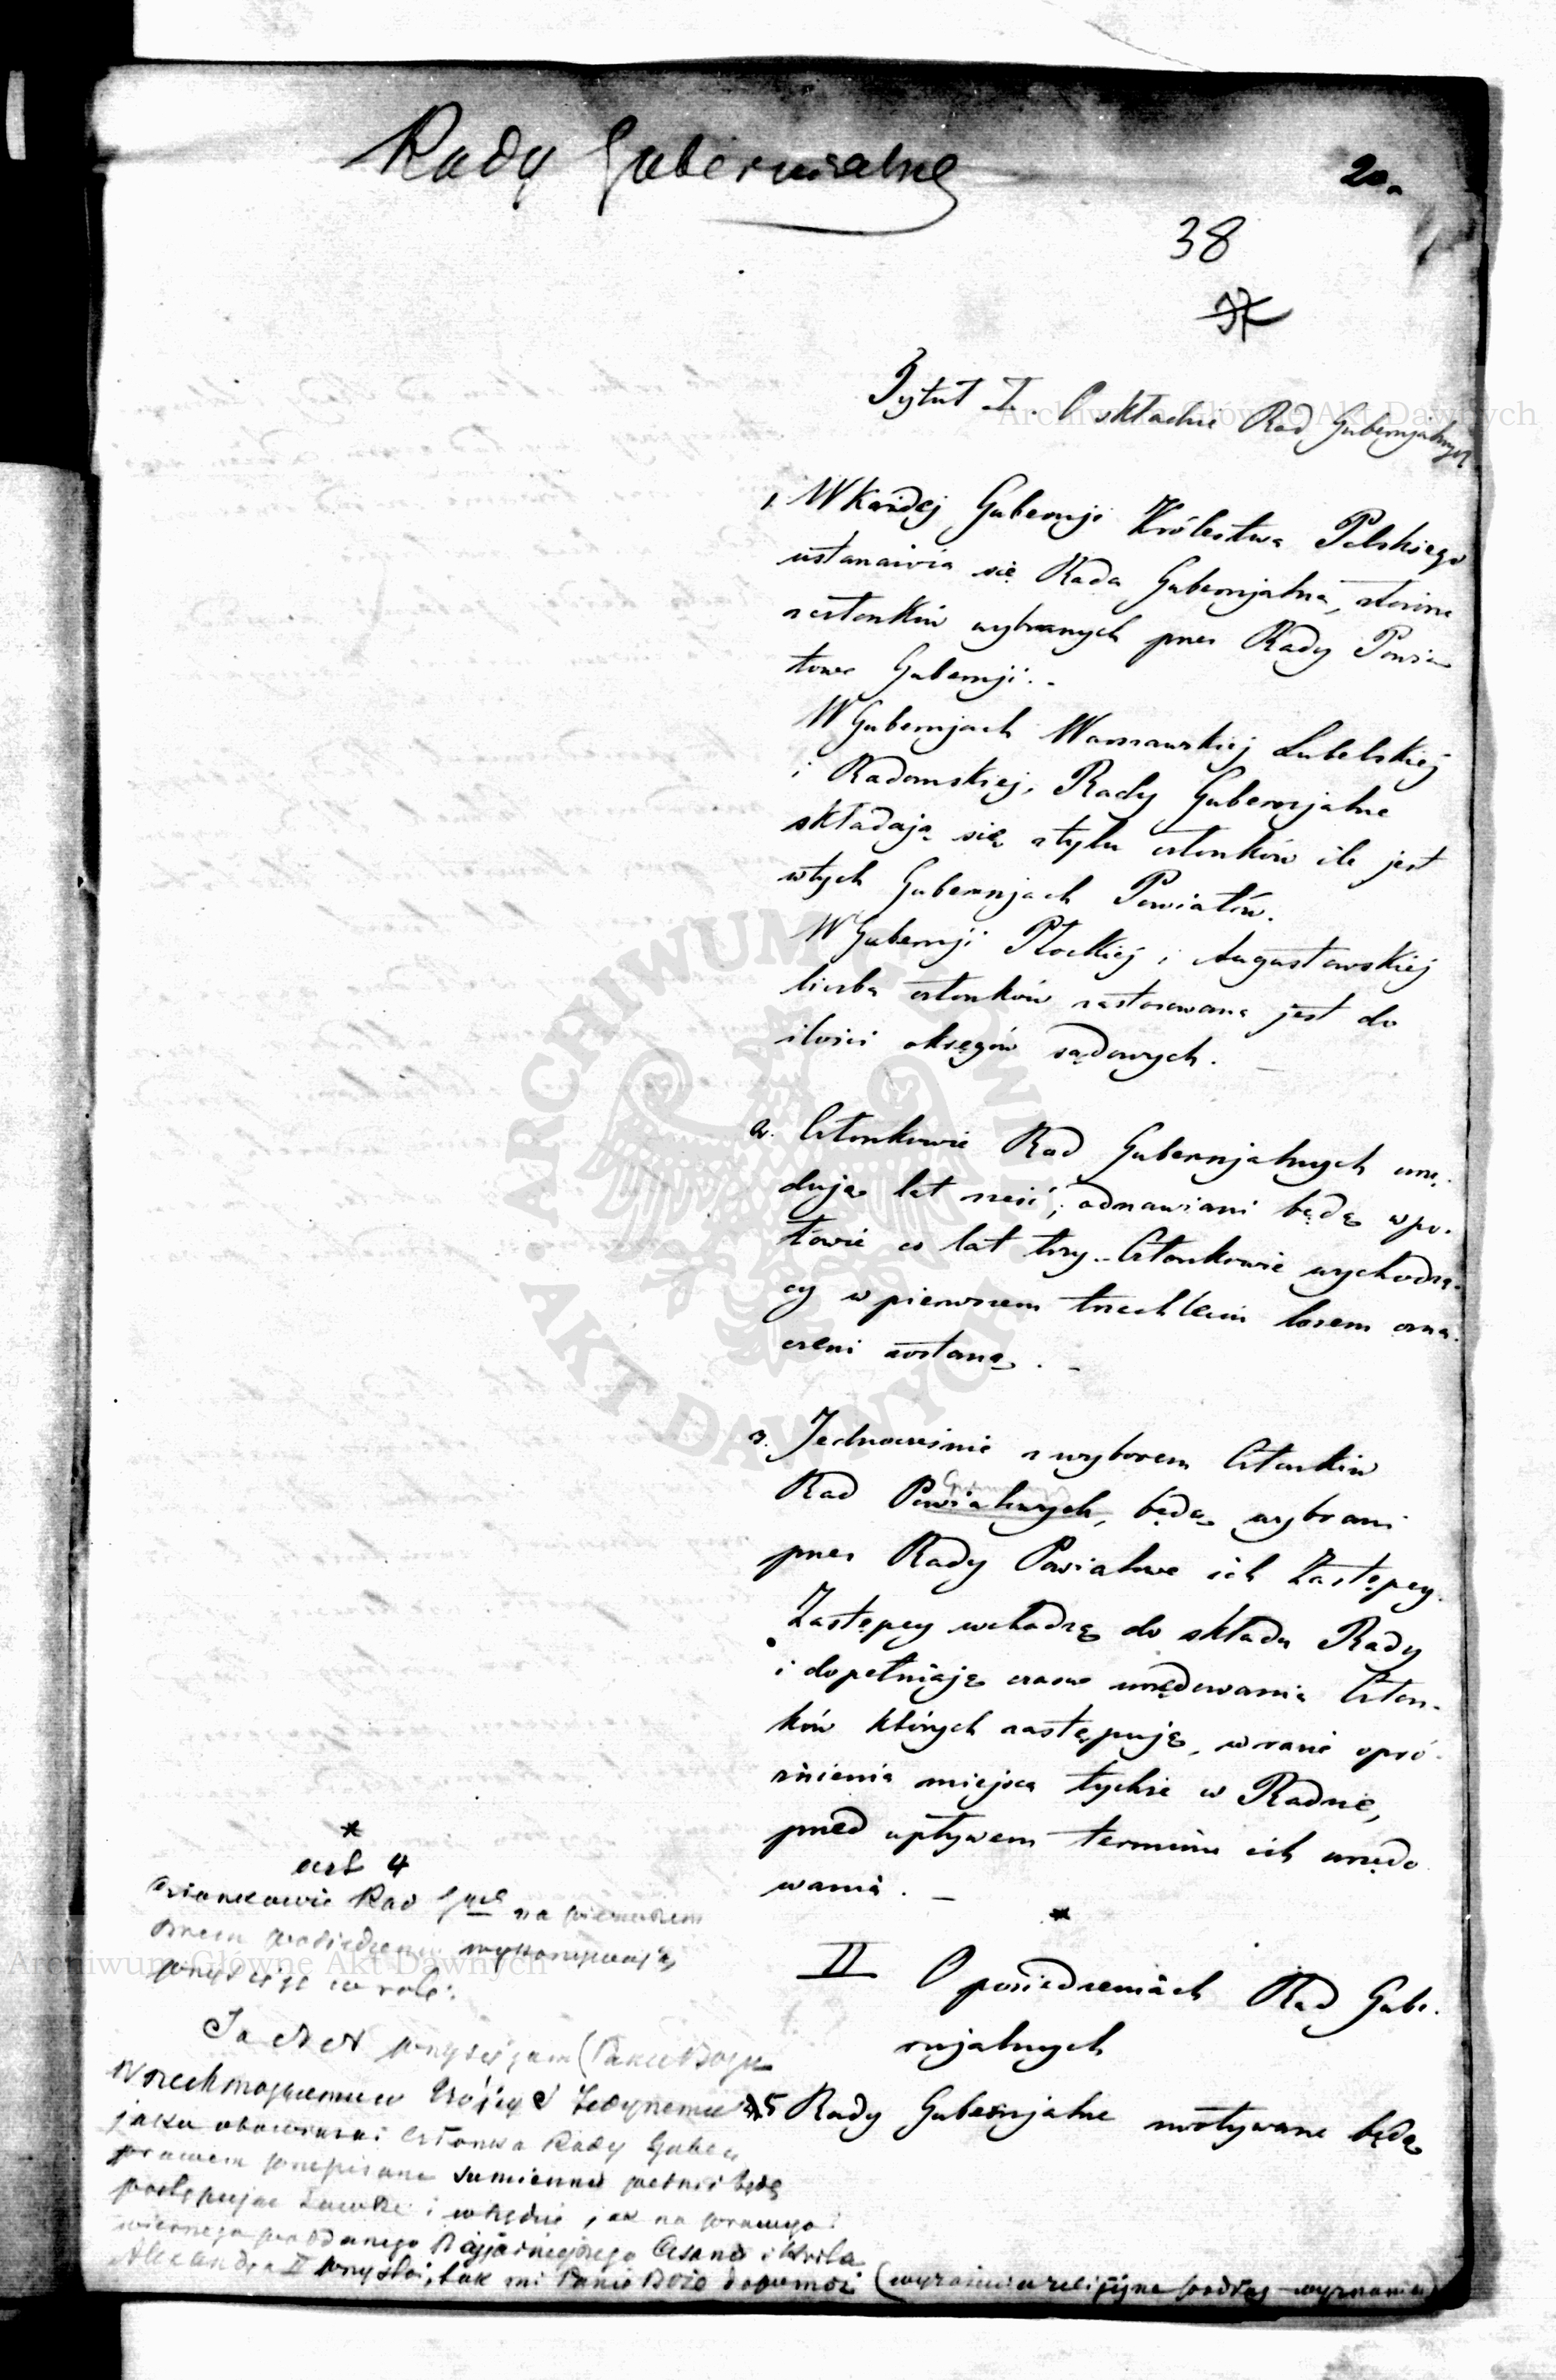 Rady Gubernialne
20.
38
37
Tytuł I. O składzie Rad Gubernjalnych
1. W każdej Gubernji Królestwa Polskiego
ustanawia się Rada Gubernjalna, złożona
z członków wybranych przez Rady Powia
towe Gubernji. -
W Gubernjach Warszawskiej Lubelskiej
i Radomskiej, Rady Gubernjalne
składają się z tylu członków ile jest
w tych Gubernjach Powiatów.
W Gubernji Płockiej i Augustowskiej
liczba członków zastosowana jest do
ilości okręgów sądowych. -
2. Członkowie Rad Gubernjalnych urzę-
dują lat sześć; odnawiani będą w po-
łowie co lat trzy. - Członkowie wychodzą-
cy w pierwszem trzechleciu losem ozna-
czeni zostaną. -
3. Jednocześnie z wyborem Członków
Rad Powiatowych, będą wybrani
przez Rady Powiatowe ich Zastępcy.
Zastępcy wchodzą do składu Rady
i dopełniają czasu urzędowania Człon-
ków których zastępują, w razie opró-
żnienia miejsca tychże w Radzie,
przed upływem terminu ich urzędo
wania. -
*
*
art 4
Członkowie Rad Gub na pierwszem
posiedzeniu wykonywają
przysięgę w rocie:
Ja N N przysięgam (Panu Bogu
Wszechmogącemu w Trójcy S Jedynemu
jako obowiązki Członka Rady Guber
prawem przepisane sumiennie pełnić będę
postępując zawsze i wszędzie jak na prawego i
wiernego poddanego Najjaśniejszego Cesarza i Króla
Alexandra II przystoi, tak mi Panie Boże dopomóż (wyrażenia religijne podług wyznania)
II O posiedzeniach Rad Gube-
rnjalnych
5 Rady Gubernjalne zwoływane będą